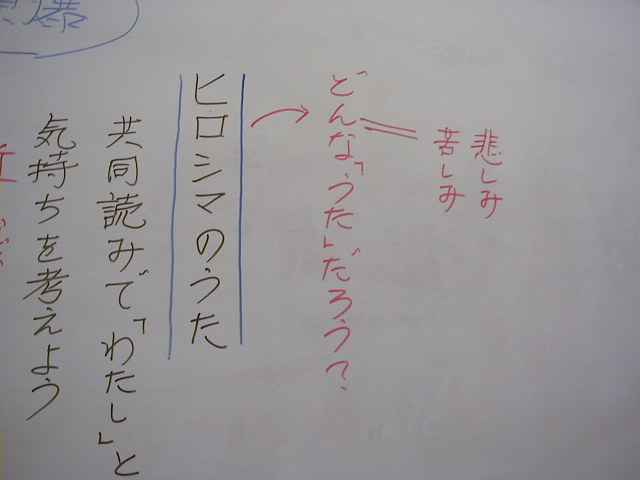 悲しみ
苦しみ
どんな「うた」だろう?
ヒロシマのうた
共同読みで「わたし」と
気持ちを考えよう